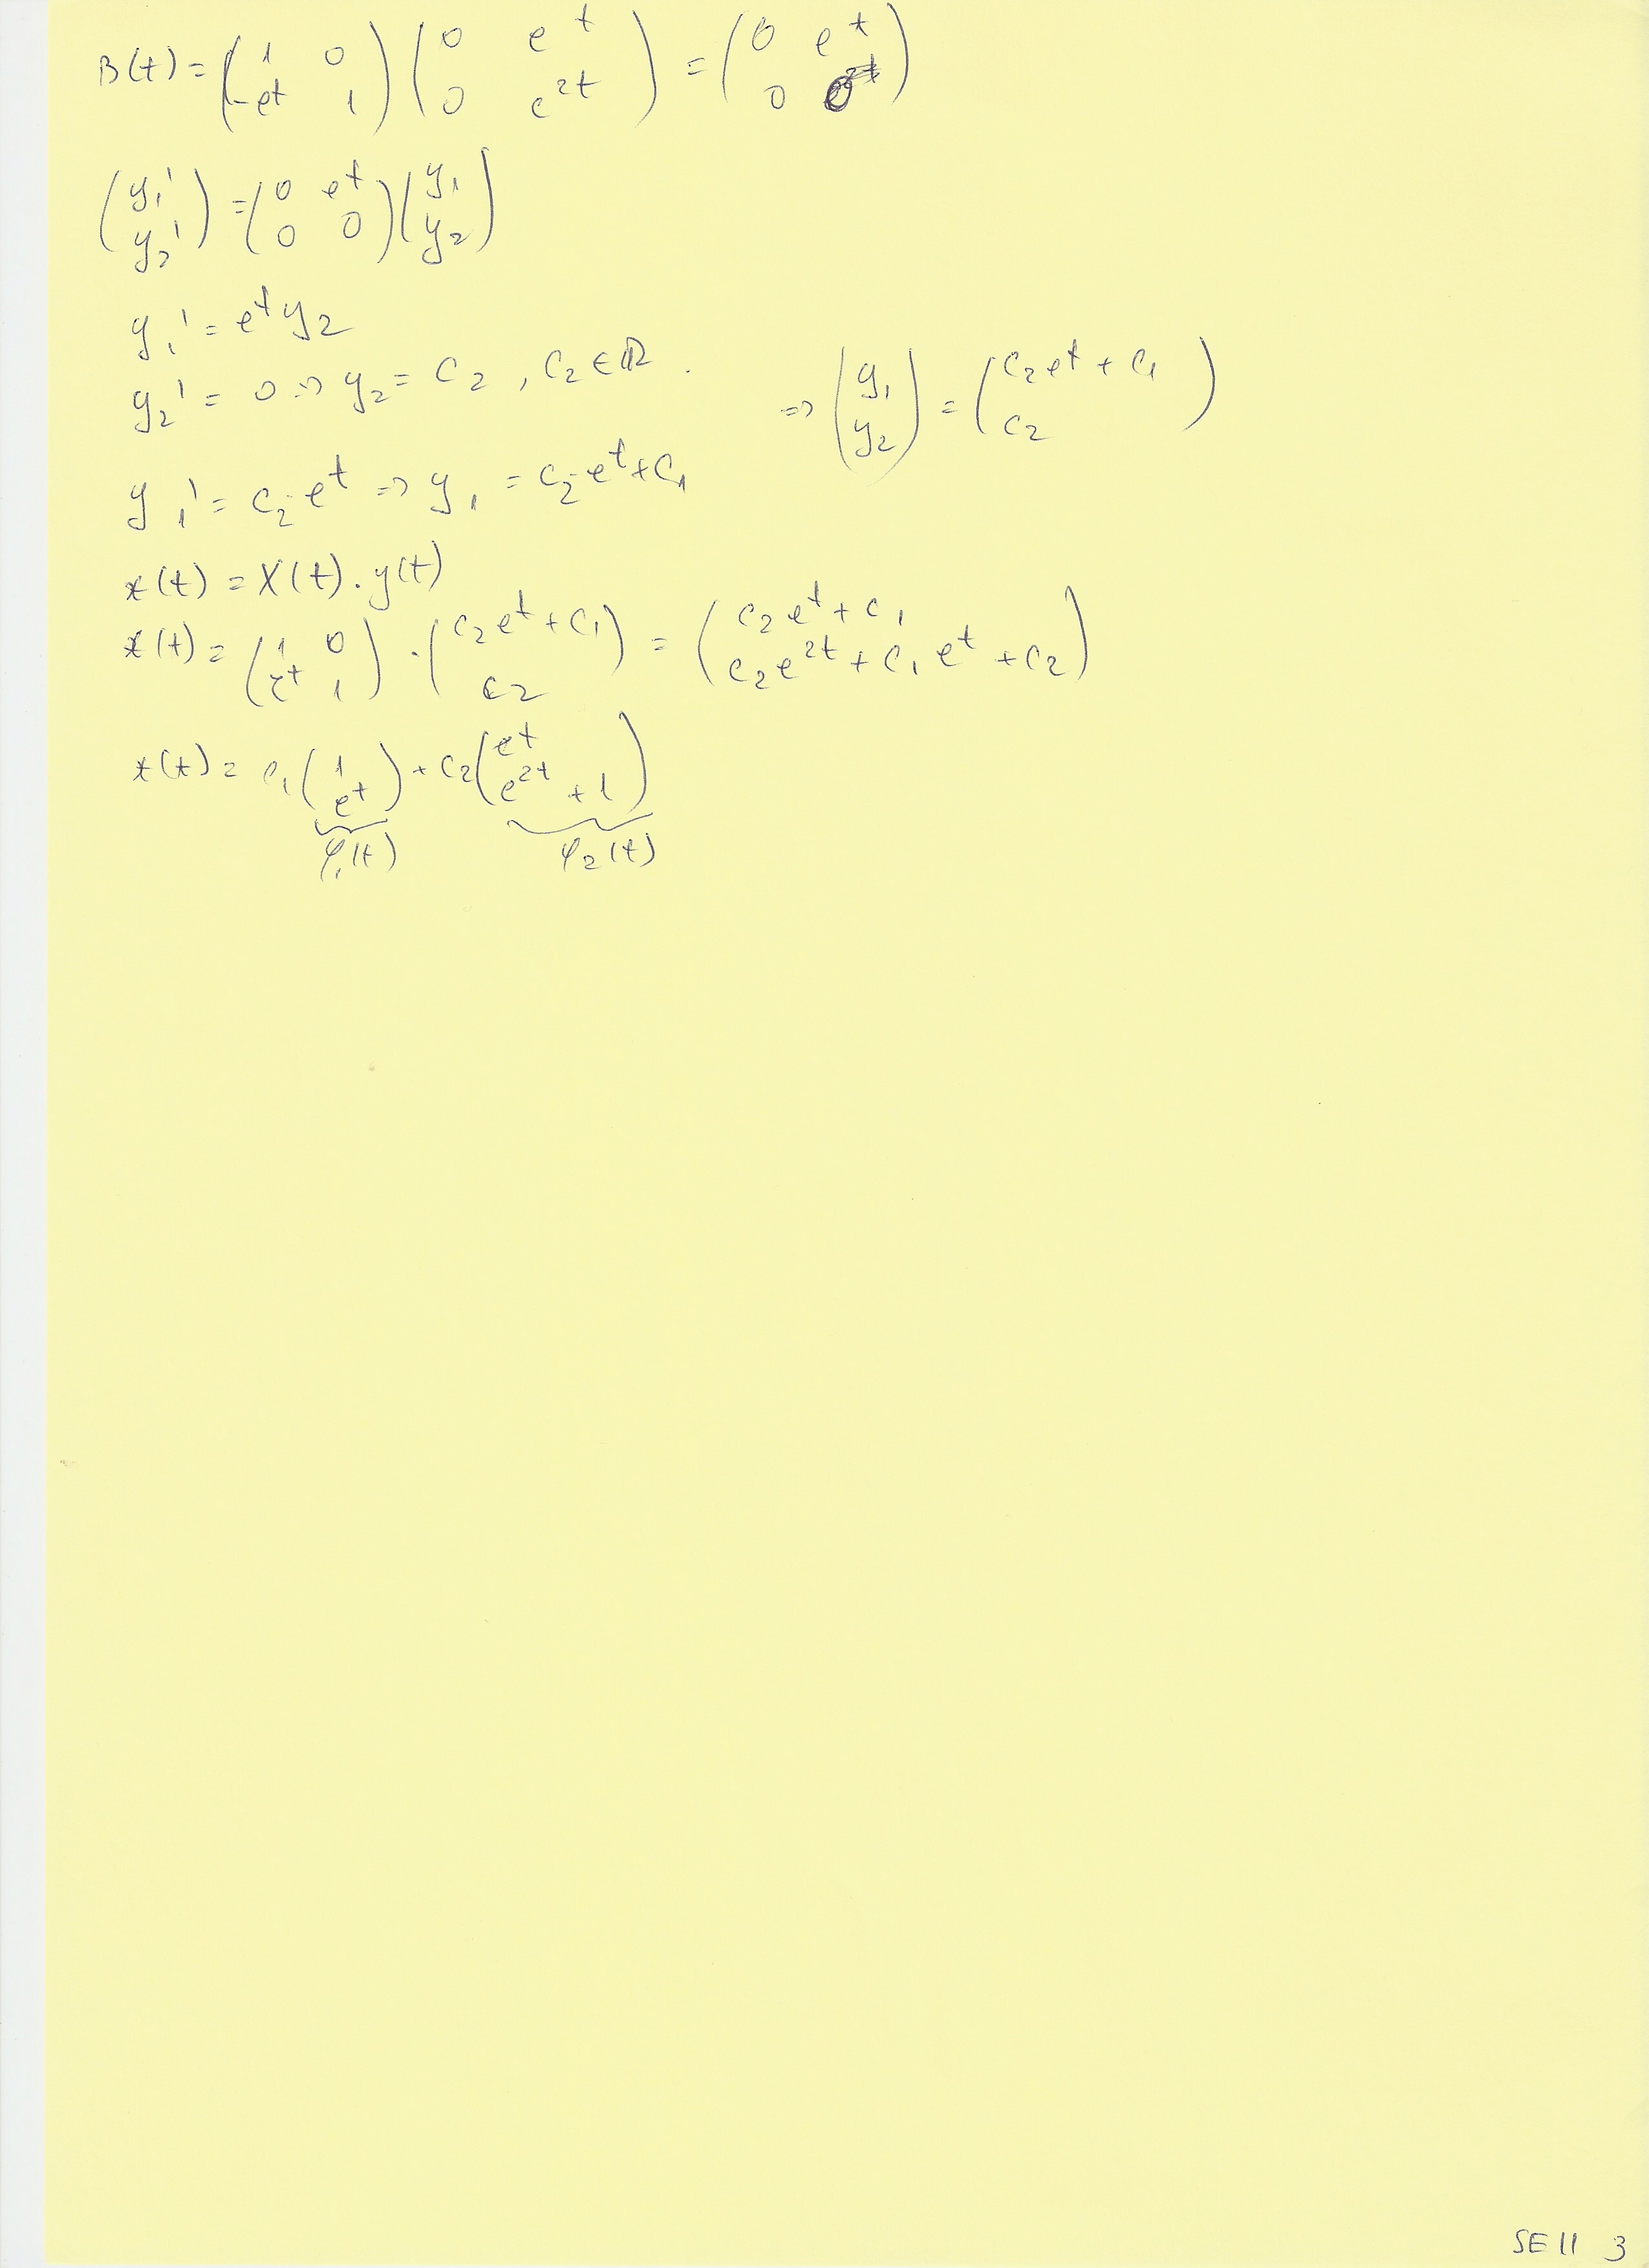 B(t) = ( 1 0 ; -e^t 1 ) ( 0 e^t ; 0 e^{2t} ) = ( 0 e^t ; 0 0 )
( y_1' ; y_2' ) = ( 0 e^t ; 0 0 ) ( y_1 ; y_2 )
y_1' = e^t y_2
y_2' = 0 => y_2 = c_2 , c_2 ∈ ℝ .
=> ( y_1 ; y_2 ) = ( c_2 e^t + c_1 ; c_2 )
y_1' = c_2 · e^t => y_1 = c_2 · e^t + c_1
x(t) = X(t) . y(t)
x(t) = ( 1 0 ; e^t 1 ) · ( c_2 e^t + c_1 ; c_2 ) = ( c_2 e^t + c_1 ; c_2 e^{2t} + c_1 e^t + c_2 )
x(t) = c_1 ( 1 ; e^t ) + c_2 ( e^t ; e^{2t} + 1 )
φ_1(t) φ_2(t)
SE 11 3